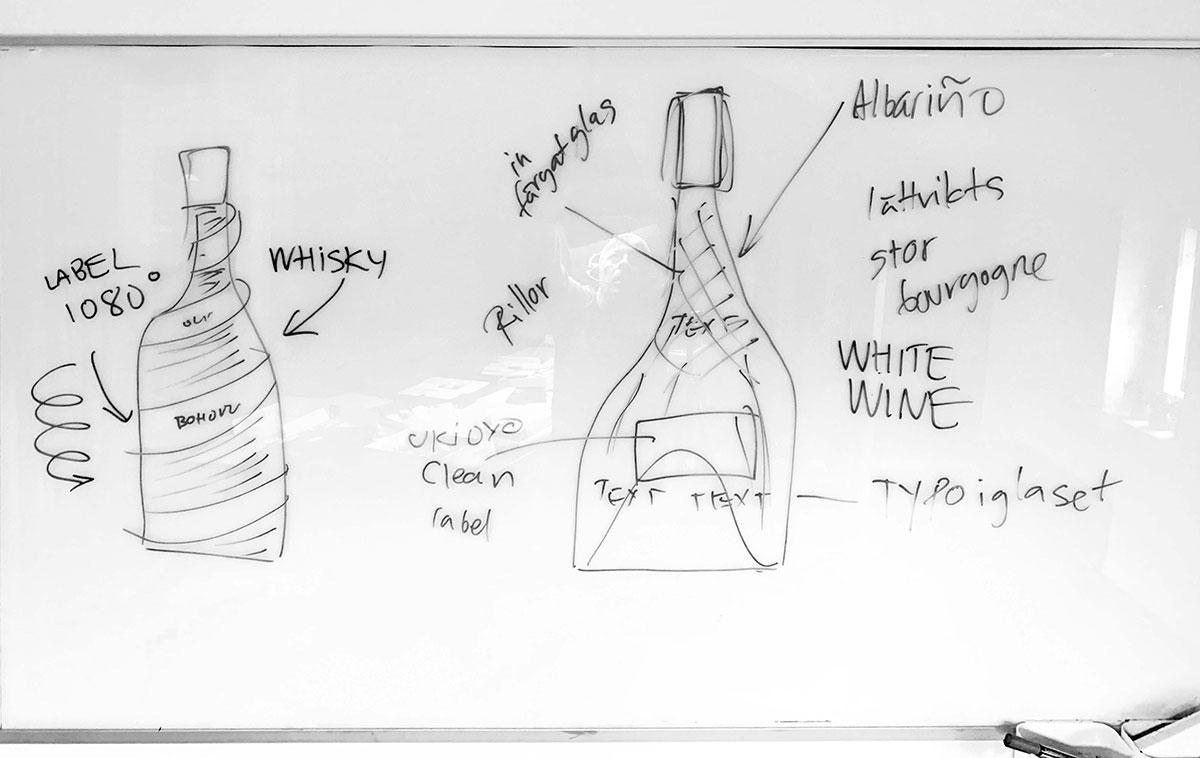 LABEL
1080°
WHISKY
in
färgat glas
Rillor
TEXT
UKIOYO
Clean
label
TEXT TEXT
Albariño
lättvikts
stor
bourgogne
WHITE
WINE
TYPO i glaset